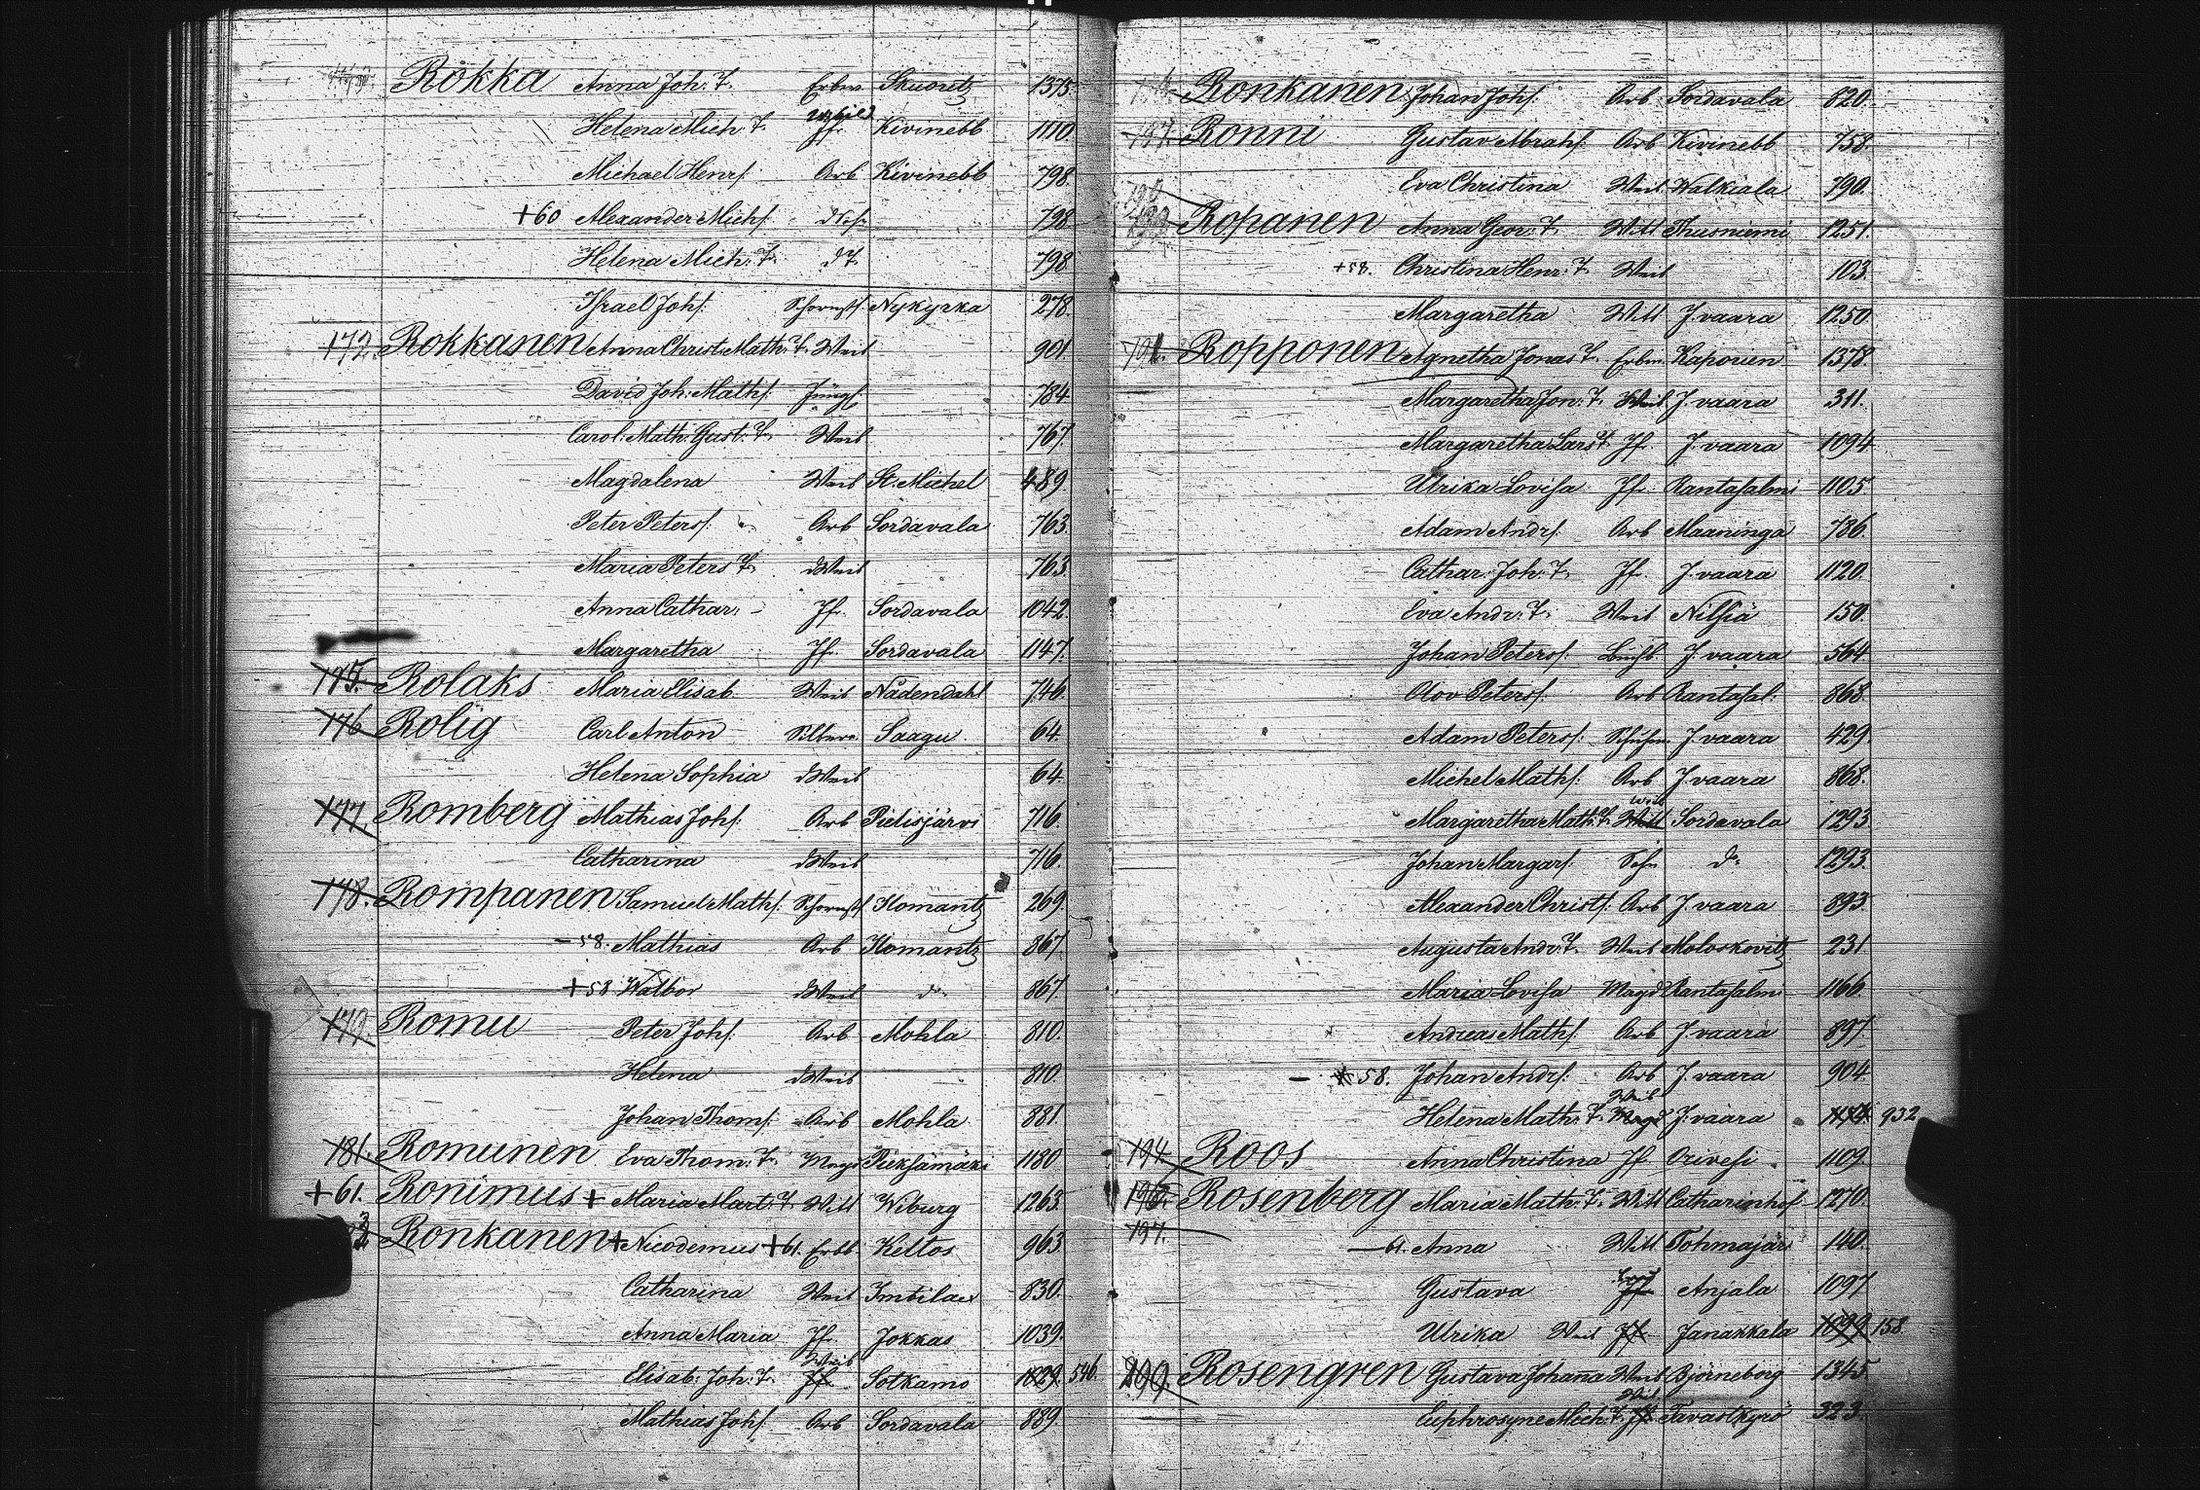 Rokka Anna Joh: T. Erbw. Skuoritz 1375.
Helena Mich: T. Jfr. Kivinebb 1110.
Michael Henrs. Arb Kivinebb 798.
+60 Alexander Michs. 798.
Helena Mich: T. dT. 798
Israel Johs. Schornstf. Nykyrka 278.
172. Rokkanen Anna Christ: Math: T. Weib 901.
David Joh: Maths. Jüngl. 784
Carol: Math: Gust: T. Weib 767
Magdalena Weib St. Michel 489.
Peter Peters. Arb Sordavala 763.
Maria Peters T. dWeib 763.
Anna Cathar: Jfr. Sordavala 1042.
Margaretha Jfr. Sordavala 1147.
175. Rolaks Maria Elisab. Weib Nådendahl 746.
176 Rolig Carl Anton Silberar. Saagu. 64.
Helena Sophia dWeib 64.
177. Romberg Mathias Johs. Arb Pielisjärvi 716.
Catharina dWeib 716.
178. Rompanen Samuel Maths. Schornstf Ilomantz 269.
-58. Mathias Arb Ilomantz 867.
+58 Walbor dWeib do 867
179. Romu Peter Johs. Arb Mohla 810.
Helena dWeib 810.
Johan Thoms. Arb Mohla 881.
181. Romunen Eva Thom: T. Magd Pieksämäki 1180
+61. Ronimus + Maria Mart: T. Witt Wiburg 1263.
Ronkanen + Nicodemus +61. Erbb. Keltos 963
Catharina Weib Imbilax 830.
Anna Maria Jfr. Jokkas 1039
Weib
Elisab: Joh: T. Jfr. Sotkamo 1029. 546.
Mathias Johs. Arb Sordavala 889.
Ronkanen Johan Johs. Arb Sordavala 820.
187. Ronni Gustav Abrahs. Arb Kivinebb 758.
Eva Christina Weib Walkiala 790.
190
Ropanen Anna Geor: T. Witt Thusniemi 1251.
+58. Christina Henr: T. Weib 103.
Margaretha Witt J. vaara 1250
191. Ropponen Agnetha Jonas T. Erbw. Kaporien 1378.
Margaretha Jon: T. Weib J. vaara 311.
Margaretha Lars T. Jfr. J. vaara 1094
Ulrika Lovisa Jfr. Rantasalmi 1105
Adam Andrs. Arb Maaninga 786.
Cathar: Joh: T. Jfr. J. vaara 1120.
Eva Andr: T. Weib Nilsiä 150.
Johan Peters. Buchb. J. vaara 564.
Olov Peters. Arb Rantasal. 868.
Adam Peters. Schuhm. J. vaara 429.
Michel Maths. Arb J. vaara 868.
Weib
Margaretha Math: T. Witt Sordavala 1293
Johan Margars. Sohn do 1293.
Alexander Christs. Arb J. vaara 893
Augusta Andr: T. Weib Moloskovitz 231.
Maria Lovisa Magd Rantasalmi 1166.
Andreas Maths. Arb J. vaara 897
- 58. Johan Andrs. Arb J. vaara 904.
Weib
Helena Math: T. Magd J. vaara 932
194. Roos Anna Christina Jfr Orivesi 1109.
196. Rosenberg Maria Math: T. Witt Catharinhof 1270.
197. -61. Anna Witt Tohmajär 140.
Gustava Jfr. Anjala 1097
Ulrika Weib Jfr Janakkala 1099 158
200 Rosengren Gustava Johana Weib Björneborg 1345.
Weib
Euphrosyne Mich: T. Jfr Tavastkyrö 323.